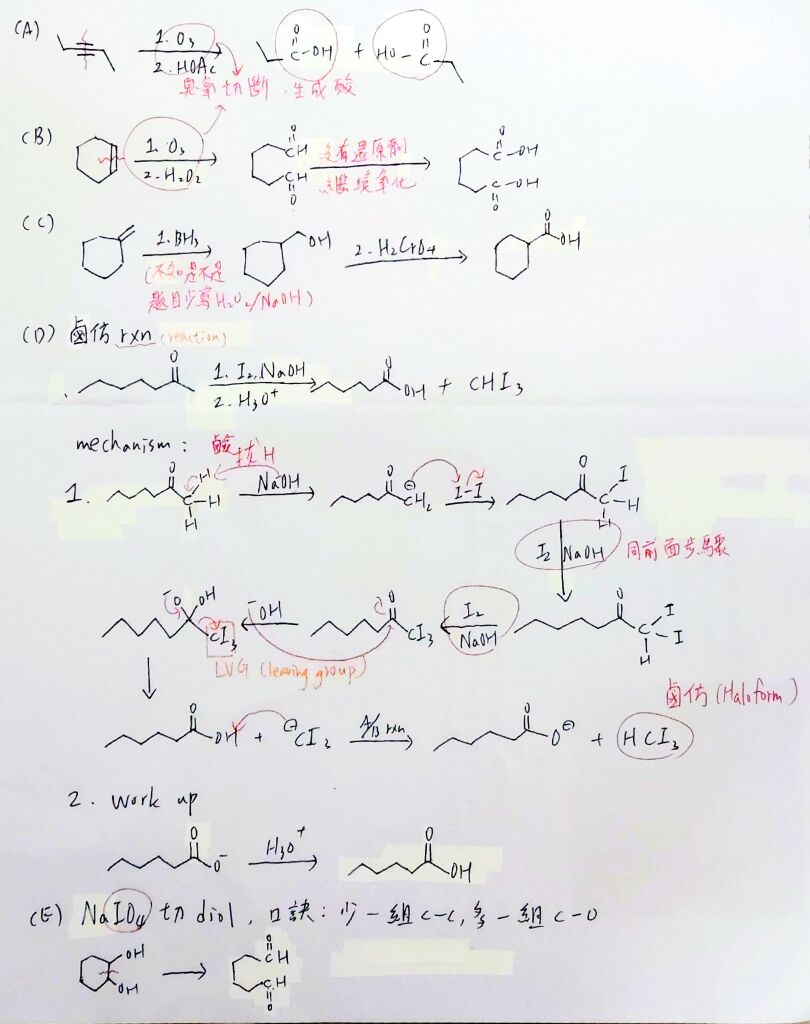 (A)
1. O₃
2. HOAc
O
C-OH
+
HO-C
O
臭氧切斷.生成酸
(B)
1. O₃
2. H₂O₂
O
CH
CH
O
沒有還原劑
繼續氧化
O
C-OH
C-OH
O
(C)
1. BH₃
(不知是不是
題目少寫H₂O₂/NaOH)
OH
2. H₂CrO₄
O
OH
(D) 鹵仿 rxn (reaction)
O
1. I₂, NaOH
2. H₃O⁺
O
OH + CHI₃
mechanism: 鹼拔H
1.
O
C
H
H
H
NaOH
O
⊖
CH₂
I-I
O
I
C-H
H
I₂ NaOH 同前面步驟
⁻O OH
CI₃
LVG (leaving group)
⁻OH
O
CI₃
I₂
NaOH
O
I
C-I
H
鹵仿 (Haloform)
O
OH + ⊖CI₃
A/B rxn
O
O⊖ + HCI₃
2. work up
O
O⁻
H₃O⁺
O
OH
(E) NaIO₄ 切 diol, 口訣: 少一組 C-C, 多一組 C-O
OH
OH
O
CH
CH
O